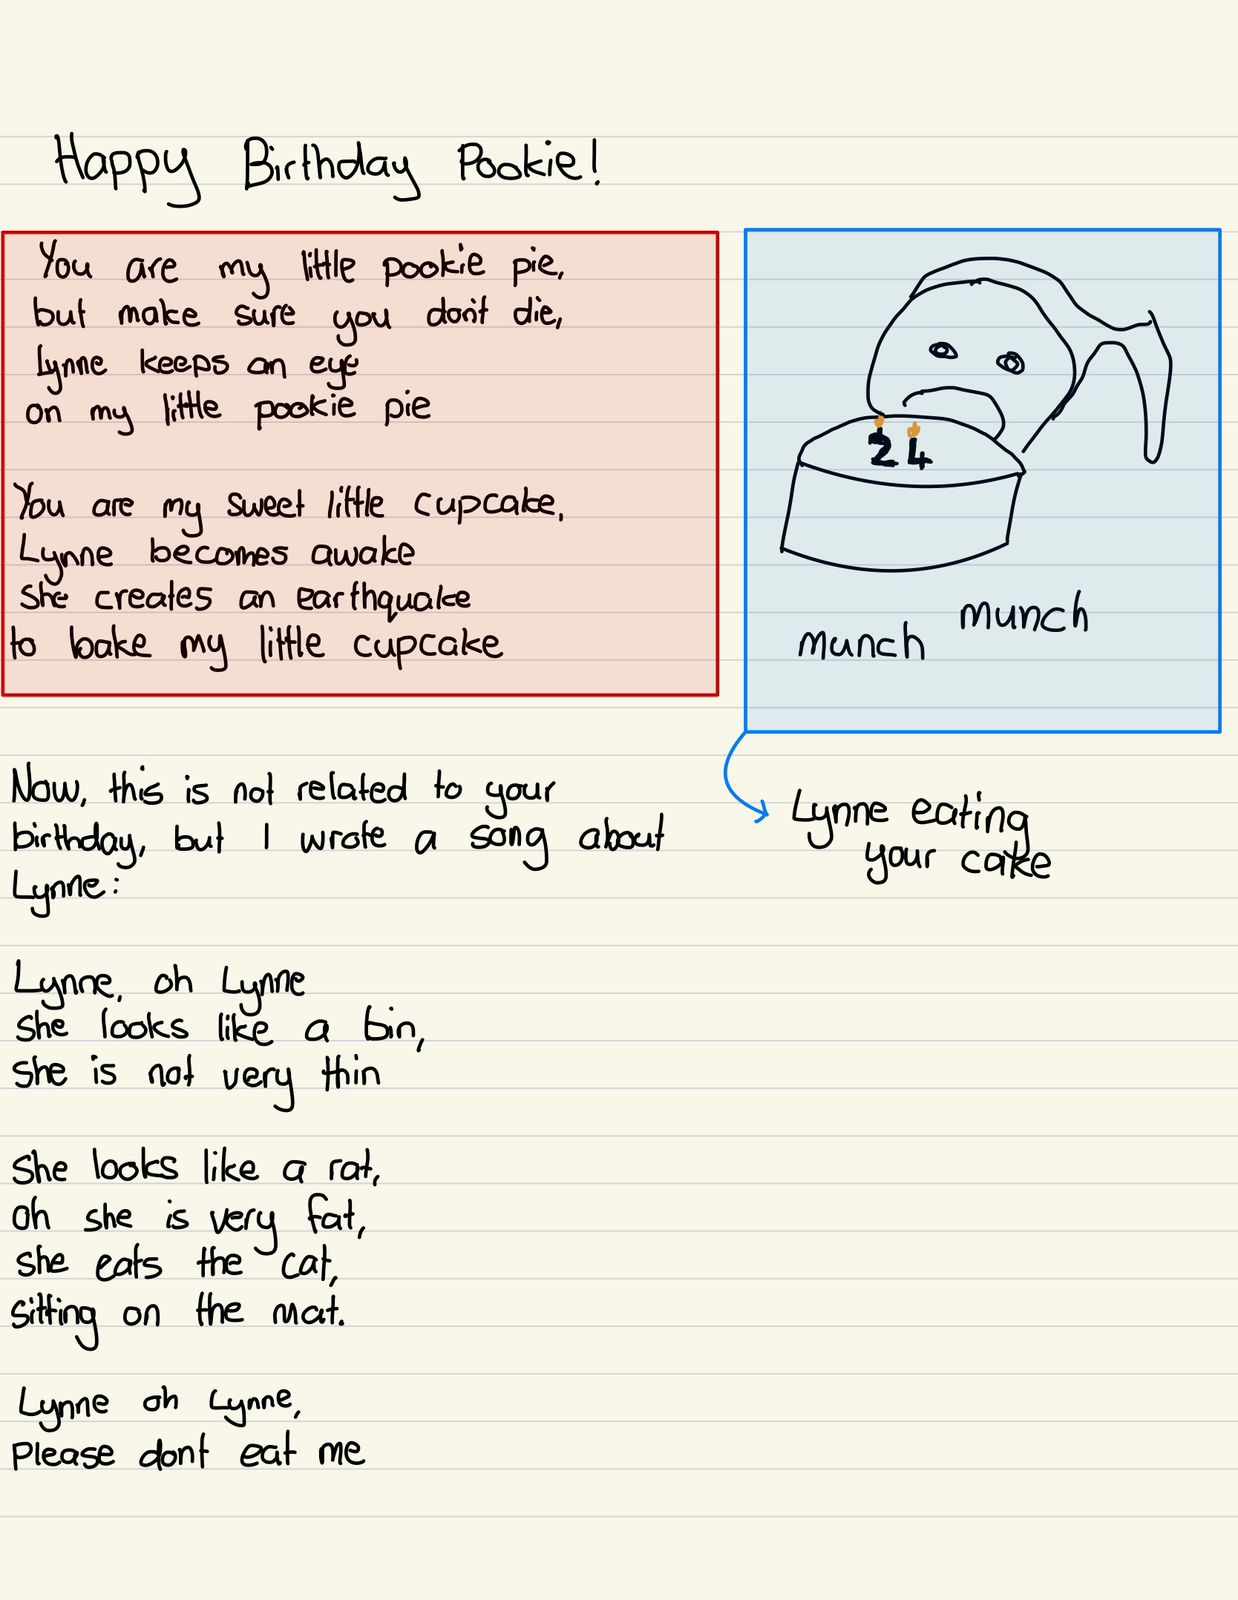 Happy Birthday Pookie!
You are my little pookie pie,
but make sure you don't die,
Lynne keeps an eye
on my little pookie pie
You are my sweet little cupcake,
Lynne becomes awake
She creates an earthquake
to bake my little cupcake
24
munch
munch
Lynne eating
your cake
Now, this is not related to your
birthday, but I wrote a song about
Lynne:
Lynne, oh Lynne
She looks like a bin,
She is not very thin
She looks like a rat,
Oh she is very fat,
She eats the cat,
Sitting on the mat.
Lynne oh Lynne,
Please dont eat me